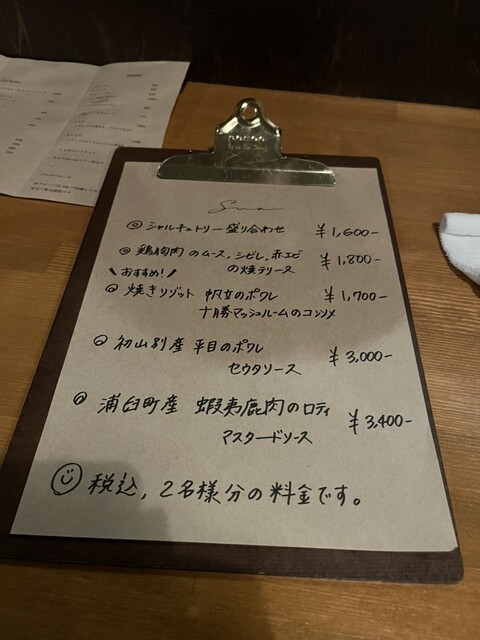 ◎ シャルキュトリー 盛り合わせ ¥1,600-
◎ 鶏胸肉 のムース、シビレ、赤エビ ¥1,800-
の焼テリーヌ
\おすすめ!/
◎ 焼きリゾット 帆立のポワレ ¥1,700-
十勝マッシュルームのコンソメ
◎ 初山別産 平目のポワレ ¥3,000-
セウタソース
◎ 浦臼町産 蝦夷鹿肉のロティ ¥3,400-
マスタードソース
税込, 2名様分の料金です。